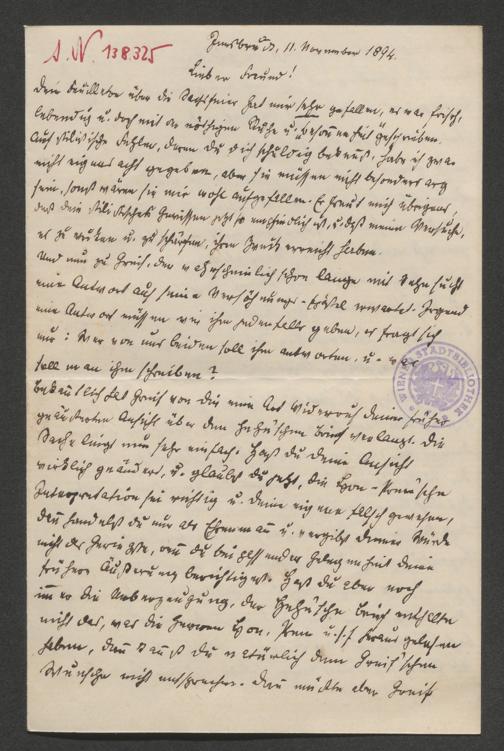 J. N. 138.325
Innsbruck, 11. November 1894.
Lieber Freund!
Dein Feuilleton über die Sachsfeier hat mir sehr gefallen, es war frisch,
lebendig u. doch mit der nöthigen Ruhe u. Besonnenheit geschrieben.
Auf stilistische Fehler, deren Du dich schuldig bekennst, habe ich zwar
nicht eigens acht gegeben, aber sie müssen nicht besonders arg
sein, sonst wären sie mir wohl aufgefallen. Es freut mich übrigens,
daß dein stilistisches Gewissen jetzt so empfindlich ist, u. daß meine Versuche,
es zu wecken u. zu schärfen, ihren Zweck erreicht haben.
Und nun zu Greif, der wahrscheinlich schon lange mit Sehnsucht
eine Antwort auf seine Versöhnungs-Epistel erwartet. Irgend
eine Antwort müssen wir ihm jedenfalls geben, es fragt sich
nur: Wer von uns beiden soll ihm antworten, u. was
soll man ihm schreiben?
WIENER STADTBIBLIOTHEK
Bekanntlich hat Greif von dir eine Art Widerruf deiner früher
geäußerten Ansicht über den Brief verlangt. Die
Sache liegt nun sehr einfach. Hast du deine Ansicht
wirklich geändert, u. glaubst du jetzt, die Lyon-Prem'sche
Interpretation sei richtig u. deine eigene falsch gewesen,
dann handelst du nur als Ehrenmann u. vergibst deiner Würde
nicht das Geringste, wenn du bei passender Gelegenheit deine
frühere Äußerung berichtigest. Hast du aber noch
immer die Ueberzeugung, der Brief enthalte
nicht das, was die Herren Lyon, Prem u.s.f. heraus gelesen
haben, dann kannst du natürlich dem Greif'schen
Wunsche nicht entsprechen. Dann müßte aber Greif